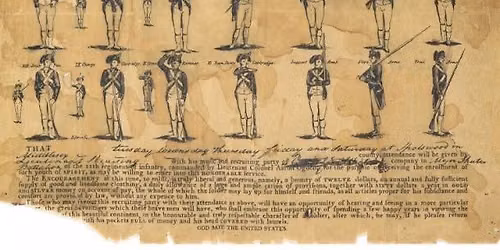 THAT tuesday wednesday thursday friday and saturday at Spotswood in
Middlesex county, attendance will be given by
with his music and recruiting party of company in Major Shutes
Battalion of the 11th regiment of infantry, commanded by Lieutenant Colonel Aaron Ogden, for the purpose of receiving the enrollment of
such youth of SPIRIT, as may be willing to enter into this HONOURABLE service.
The ENCOURAGEMENT at this time, to enlist, is truly liberal and generous, namely, a bounty of TWELVE dollars, an annual and fully sufficient
supply of good and handsome cloathing, a daily allowance of a large and ample ration of provisions, together with SIXTY dollars a year in GOLD
and SILVER money on account of pay, the whole of which the soldier may lay up for himself and friends, as all articles proper for his subsistance and
comfort are provided by law, without any expence to him.
Those who may favour this recruiting party with their attendance as above, will have an opportunity of hearing and seeing in a more particular
the great advantages which these brave men will have, who shall embrace this opportunity of spending a few happy years in viewing the
of this beautiful continent, in the honourable and truly respectable character of a soldier, after which, he may, if he pleases return
with his pockets FULL of money and his head COVERED with laurels.
GOD SAVE THE UNITED STATES.